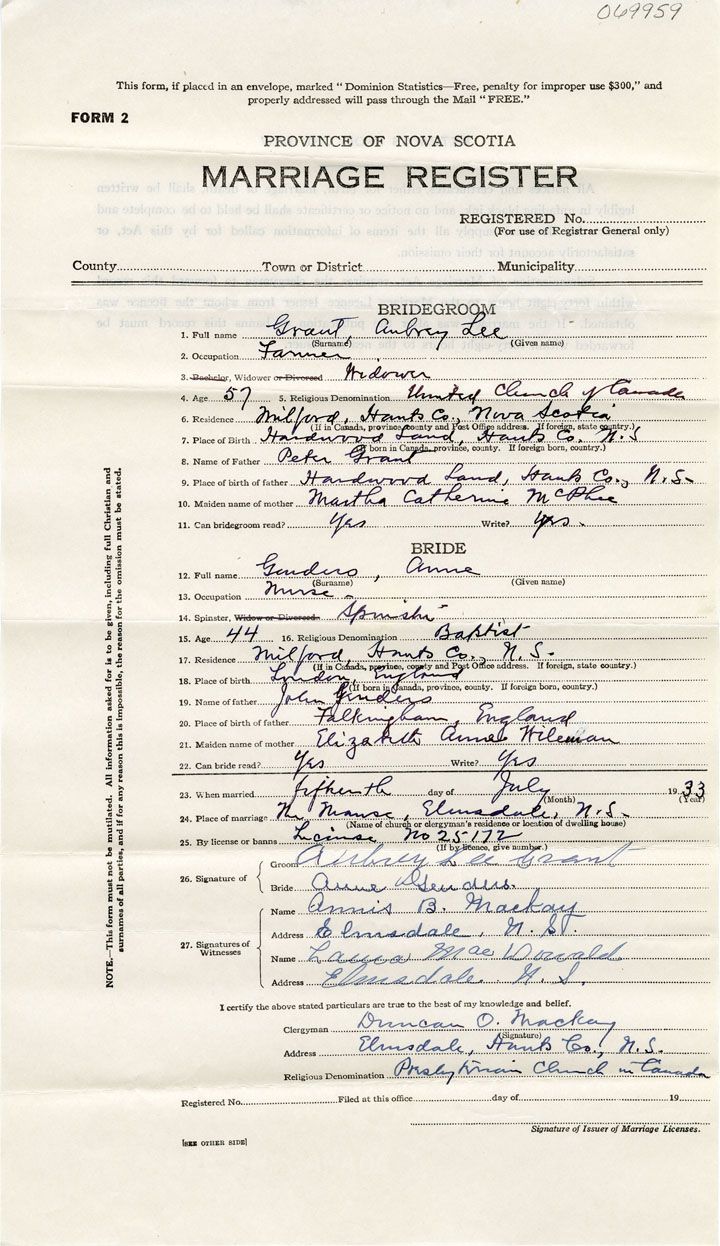 069959
This form, if placed in an envelope, marked "Dominion Statistics—Free, penalty for improper use $300," and
properly addressed will pass through the Mail "FREE."
FORM 2
PROVINCE OF NOVA SCOTIA
MARRIAGE REGISTER
REGISTERED No.
(For use of Registrar General only)
County Town or District Municipality
BRIDEGROOM
1. Full name Grant, Aubrey Lee
(Surname) (Given name)
2. Occupation Farmer
3. Bachelor, Widower or Divorced Widower
4. Age 57 5. Religious Denomination United Church of Canada
6. Residence Milford, Hants Co., Nova Scotia
(If in Canada, province, county and Post Office address. If foreign, state country.)
7. Place of Birth Hardwood Land, Hants Co. N.S
(If born in Canada, province, county. If foreign born, country.)
8. Name of Father Peter Grant
9. Place of birth of father Hardwood Land, Hants Co., N.S.
10. Maiden name of mother Martha Catherine McPhee
11. Can bridegroom read? Yes Write? Yes.
BRIDE
12. Full name Genders, Anne
(Surname) (Given name)
13. Occupation Nurse
14. Spinster, Widow or Divorced Spinster
15. Age 44 16. Religious Denomination Baptist
17. Residence Milford, Hants Co., N.S.
(If in Canada, province, county and Post Office address. If foreign, state country.)
18. Place of birth London, England
(If born in Canada, province, county. If foreign born, country.)
19. Name of father John Genders
20. Place of birth of father Falkingham, England
21. Maiden name of mother Elizabeth Annie Wileman
22. Can bride read? Yes Write? Yes
23. When married fifteenth day of July 1933
(Month) (Year)
24. Place of marriage The Manse, Elmsdale, N.S.
(Name of church or clergyman's residence or location of dwelling house)
25. By license or banns License No 25172
(If by licence, give number.)
26. Signature of
Groom Aubrey Lee Grant
Bride Anne Genders.
27. Signatures of Witnesses
Name Annis B. Mackay
Address Elmsdale, N.S.
Name Laura MacDonald
Address Elmsdale N.S.
I certify the above stated particulars are true to the best of my knowledge and belief.
Clergyman Duncan O. Mackay
(Signature)
Address Elmsdale, Hants Co., N.S.
Religious Denomination Presbyterian Church in Canada
Registered No. Filed at this office day of 19
Signature of Issuer of Marriage Licenses.
[SEE OTHER SIDE]
NOTE.—This form must not be mutilated. All information asked for is to be given, including full Christian and
surnames of all parties, and if for any reason this is impossible, the reason for the omission must be stated.